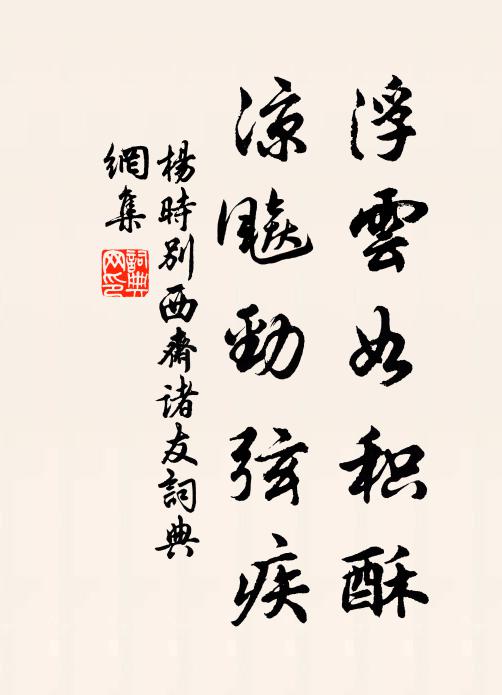 浮雲如积酥
涼飚勁弦疾
楊時别西齋諸友詞典
網集
詞典网印